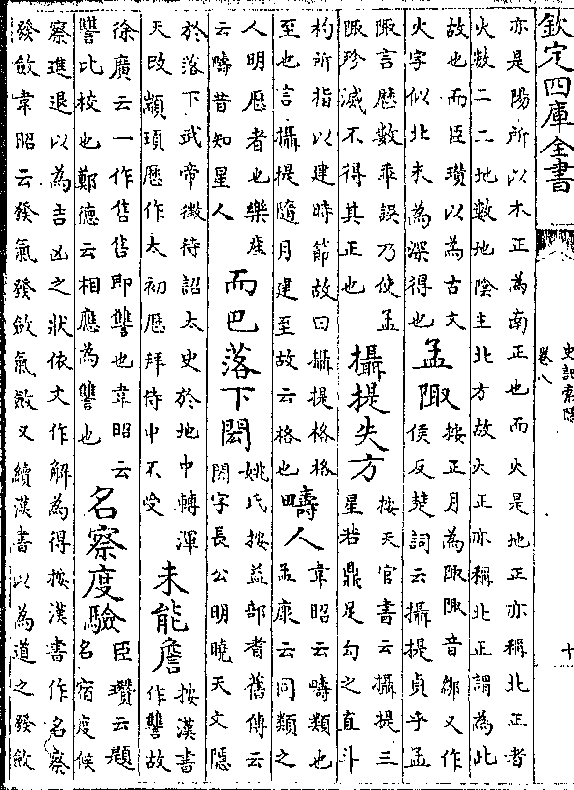 欽定四庫全書
史記索隱
卷八
十
亦是陽所以木正為南正也而火是地正亦稱北正者
火數二二地數地陰主北方故火正亦稱北正謂為此
故也而臣瓚以為古文
火字似北未為深得也
孟陬
按正月為陬陬音鄒又作
侯反楚詞云攝提貞乎孟
陬言歴數乖誤乃使孟
陬殄滅不得其正也
攝提失方
按天官書云攝提三
星若鼎足勾之直斗
杓所指以建時節故曰攝提格格
至也言攝提隨月建至故云格也
疇人
韋昭云疇類也
孟康云同類之
人明歴者也樂産
云疇昔知星人
而巴落下閎
姚氏按益部耆舊傳云
閎字長公明曉天文隱
於落下武帝徴待詔太史於地中轉渾
天改顓頊歴作太初歴拜侍中不受
未能詹
按漢書
作讐故
徐廣云一作售售即讐也韋昭云
讐比校也鄭德云相應為讐也
名察度驗
臣瓚云題
名宿度候
察進退以為吉凶之狀依文作解為得按漢書作名察
發斂韋昭云發氣發斂氣斂又續漢書以為道之發斂